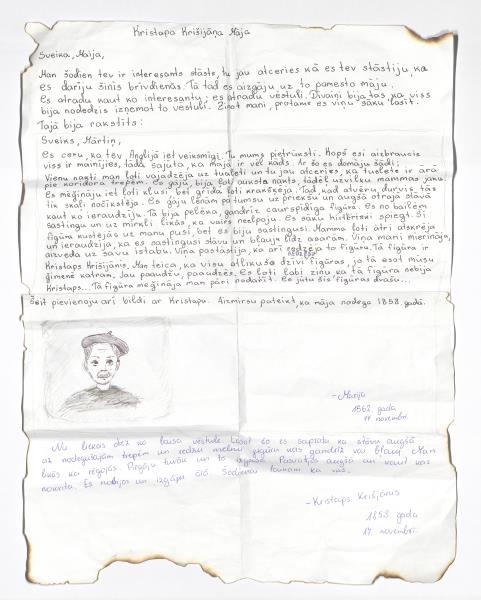 Kristapa Krišijāņa Māja
Sveika, Maija,
Man šodien tev ir interesants stāsts, tu jau atceries kā es tev stāstīju, ka
es darīju šinīs brīvdienās. Tā tad es aizgāju uz to pamesto māju.
Es atradu kaut ko interesantu: es atradu vēstuli. Dīvaini bija tas, ka viss
bija nodedzis izņemot to vēstuli. Zinot mani, protams es viņu sāku lasīt.
Tajā bija rakstīts:
Sveiks, Mārtiņ,
Es ceru, ka tev Anglijā iet veiksmīgi. Tu mums pietrūksti. Kopš esi aizbraucis
viss ir mainījies, tāda sajūta, ka mājā ir vēl kāds. Ar šo es domāju šādi:
Vienu nakti man ļoti vajadzēja uz tualeti un tu jau atceries, ka tualete ir ārā
pie koridora trepēm. Es gāju, bija ļoti auksta nakts, tādēļ uzvilku mammas
Es mēģināju iet ļoti klusi, bet grīda ļoti krakšķēja. Tad, kad atvēru durvis, tās
tik skaļi nočīkstēja. Es gāju lēnām pa tumsu uz priekšu un augšā otrajā stāvā
kaut ko ieraudzīju. Tā bija pelēka, gandrīz caurspīdīga figūra. Es no bailēm
sastingu un uz mirkli likās, ka vairs neelpoju. Es sāku histēriski spiegt. Šī
figūra kustējās uz manu pusi, bet es biju sastingusi. Mamma ātri atskrēja
un ieraudzīja, ka es sastingusi stāvu un blauju līdz asarām. Viņa mani mierināja,
aizveda uz savu istabu. Viņa pastāstīja, ka arī redzēja to figūru. Tā figūra ir
Kristaps Krišijānis. Man teica, ka visu atlikušo dzīvi figūras, jo tā esot mūsu
ģimenē katram, jau paaudžu, paaudzēs. Es ļoti labi zinu ka tā figūra nebija
Kristaps... Tā figūra mēģināja man pāri nodarīt. Es jūtu šīs figūras dvašu...
Šeit pievienoju arī bildi ar Kristapu. Aizmirsu pateikt, ka māja nodega 1858. gadā.
- Marija
1863. gada
17. novembrī.
Nu liekas diez ko baisa vēstule. Lasot šo es sapratu ka stāvu augšā
uz nodegušajām trepēm un redzu melnu figūru kas gandrīz vai blauj. Man
likās ka rēgojas. Piegāju tuvāk un to Paskatījos augšā un kaut kas
Es nobijos un izgāju ārā. Šodienai
- Kristaps Krišjānis
1858. gada
17. novembrī.